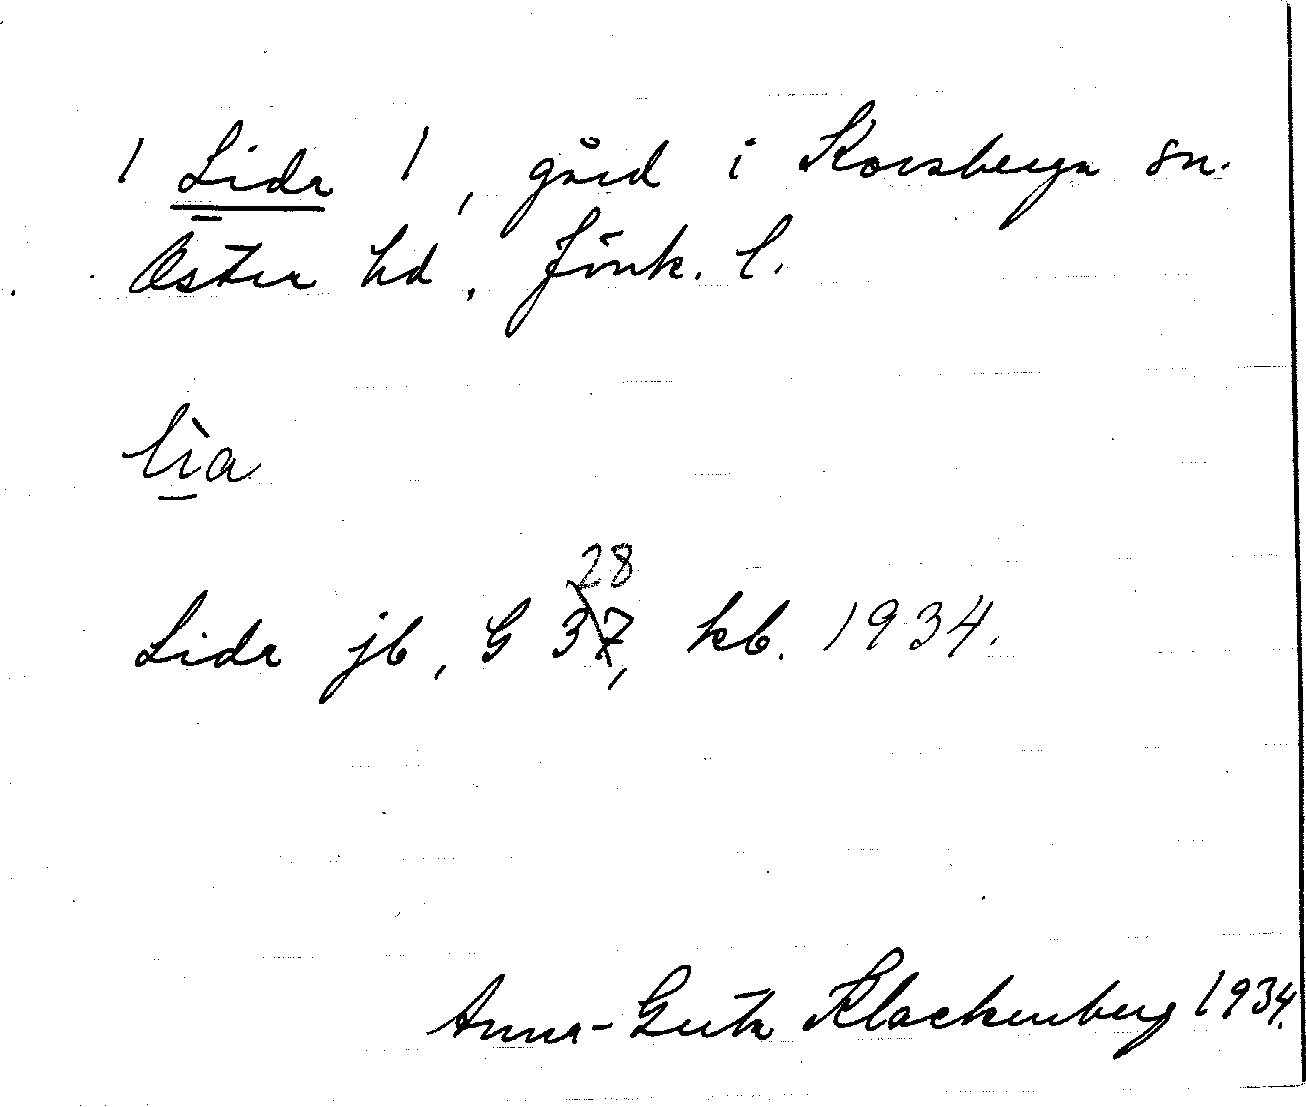 / Lida /, gård i Korsberga sn.
Öster hd, Jönk. l.
lìa
Lida jb, G 37, 28 kb. 1934.
Anna-Greta Klackenberg 1934.